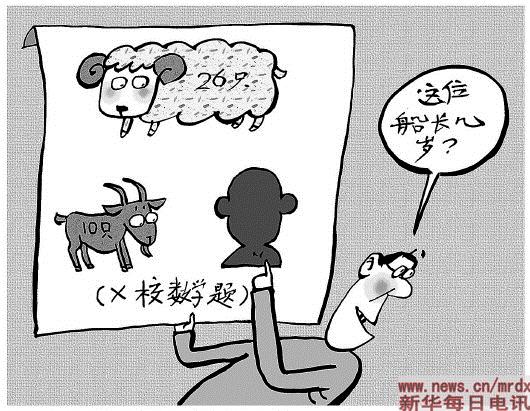 26只
10只
(×校数学题)
这位
船长几
岁?
www.news.cn/mrdx
新华每日电讯